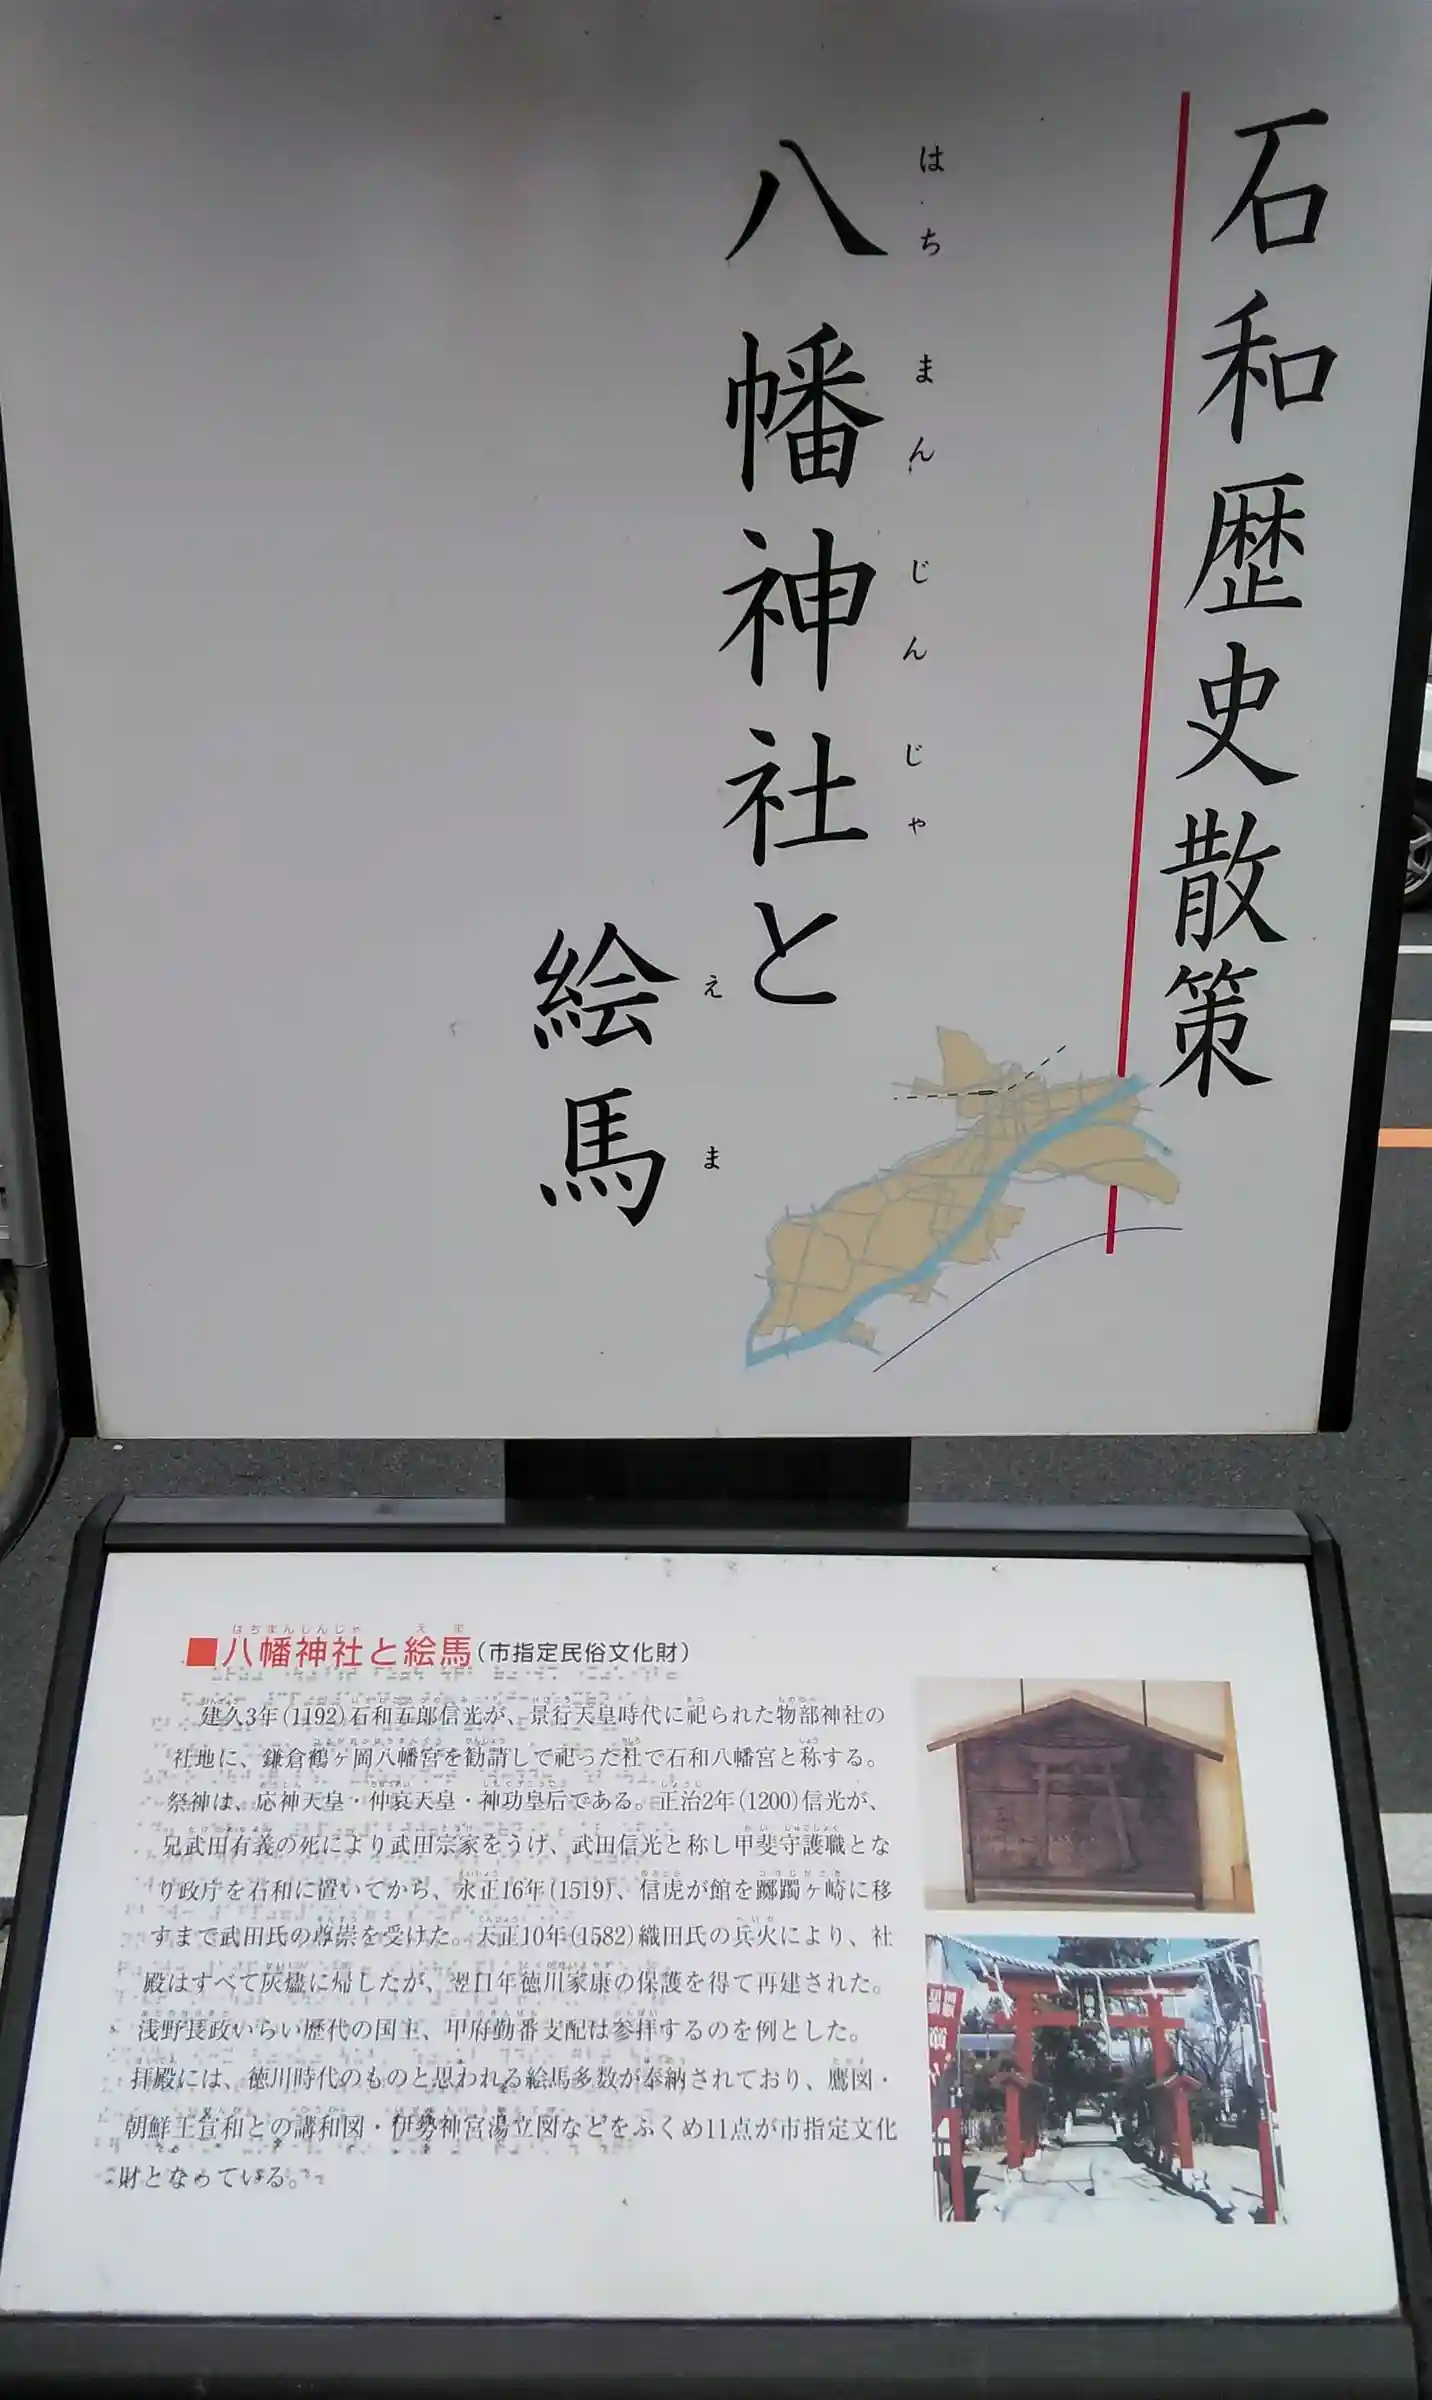 石和歴史散策
八幡神社と
はちまんじんじゃ
絵馬
えま
■八幡神社と絵馬(市指定民俗文化財)
はちまんじんじゃ えま
建久3年(1192)石和五郎信光が、景行天皇時代に祀られた物部神社の
社地に、鎌倉鶴ヶ岡八幡宮を勧請して祀った社で石和八幡宮と称する。
祭神は、応神天皇・仲哀天皇・神功皇后である。正治2年(1200)信光が、
兄武田有義の死により武田宗家をうけ、武田信光と称し甲斐守護職とな
り政庁を石和に置いてから、永正16年(1519)、信虎が館を躑躅ヶ崎に移
すまで武田氏の尊崇を受けた。天正10年(1582)織田氏の兵火により、社
殿はすべて灰燼に帰したが、翌11年徳川家康の保護を得て再建された。
浅野長政いらい歴代の国主、甲府勤番支配は参拝するのを例とした。
拝殿には、徳川時代のものと思われる絵馬多数が奉納されており、鷹図・
朝鮮王宣和との講和図・伊勢神宮湯立図などをふくめ11点が市指定文化
財となっている。